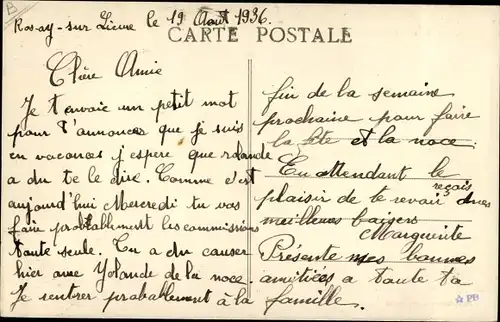 Rosay-sur-Lieure le 19 Août 1936.
CARTE POSTALE
Chère Amie
Je t'avoie un petit mot
pour t'annoncer que je suis
en vacances j'espère que rolande
a du te le dire. Comme c'est
aujourd'hui Mercredi tu vas
faire probablement les commissions
toute seule. Tu a du causer
hier avec Yolande de la noce.
Je rentrer probablement à la
fin de la semaine
prochaine pour faire
la fête et la noce.
En attendant le
plaisir de te revoir
reçois
mes
meilleurs baisers
Marguerite
Présente mes bonnes
amitiées a toute ta
famille.
PB